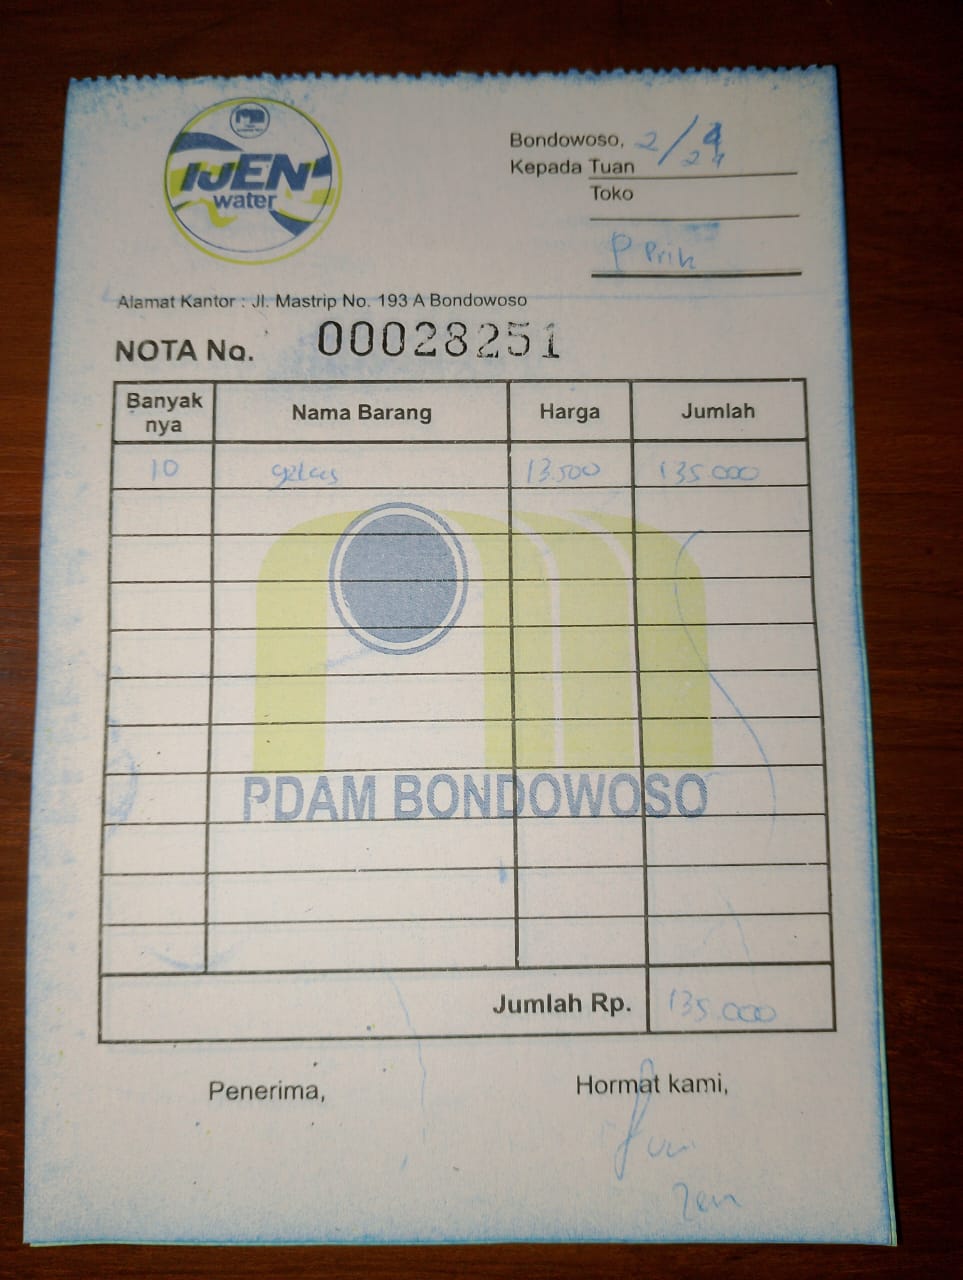 IJEN
water
Bondowoso, 2/4
24
Kepada Tuan
Toko
P Prih
Alamat Kantor : Jl. Mastrip No. 193 A Bondowoso
NOTA No. 00028251
Banyak nya Nama Barang Harga Jumlah
10 gelas 13.500 135.000
PDAM BONDOWOSO
Jumlah Rp. 135.000
Penerima, Hormat kami,